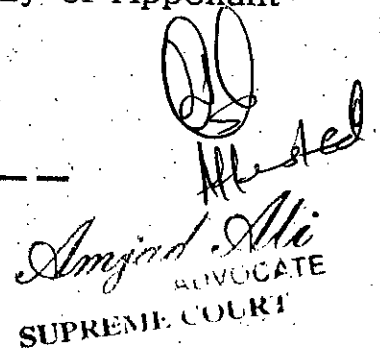 of Appellant
Attested
Amjad Ali
ADVOCATE
SUPREME COURT